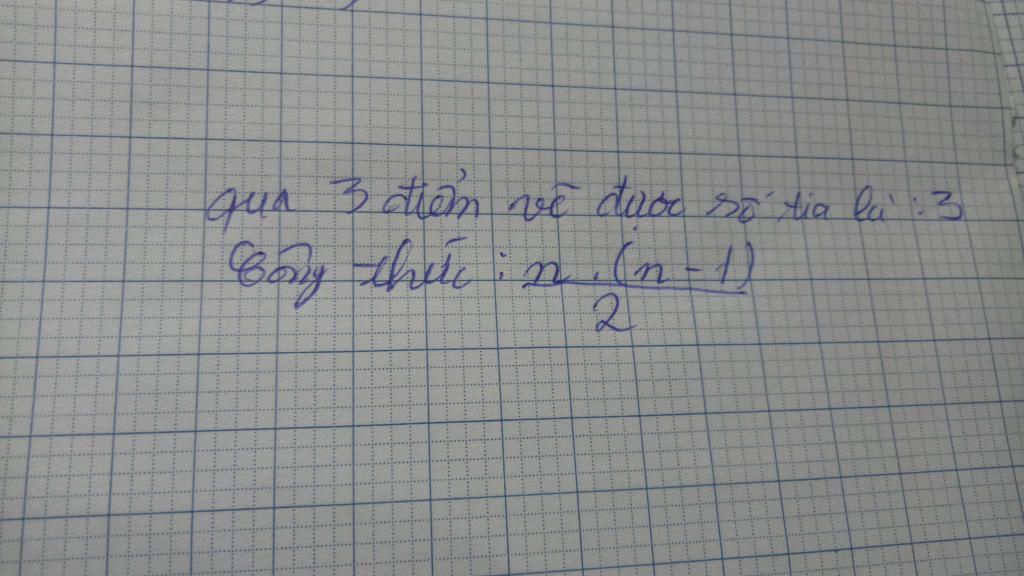 qua 3 điểm vẽ được số tia là : 3
Công thức : n . (n - 1)
2